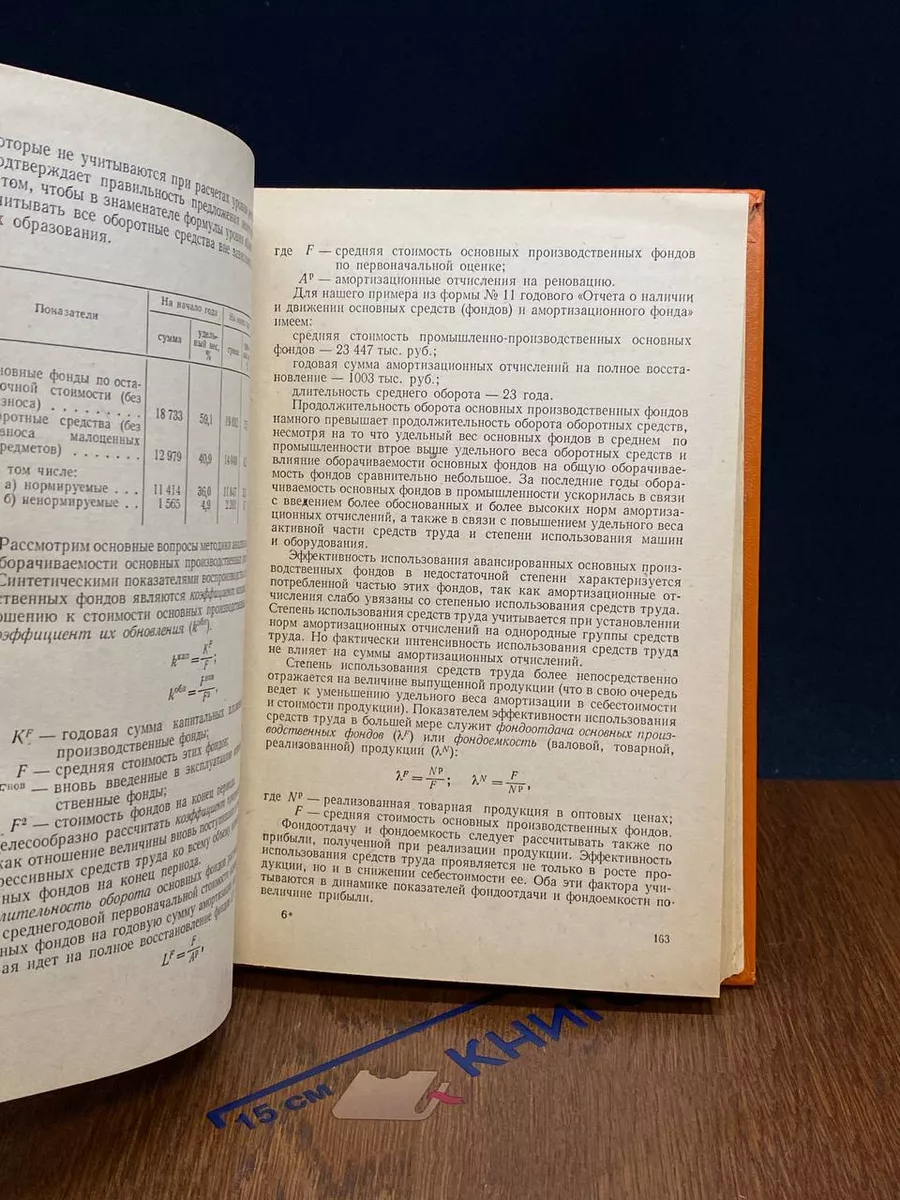 которые не учитываются при расчетах
подтверждает правильность предложения
том, чтобы в знаменателе формулы
читывать все оборотные средства вне
х образования.
Показатели
На начало года
сумма
удель-
ный вес,
%
новные фонды по оста-
очной стоимости (без
зноса) . . . . . . . . .
18 733
59,1
оротные средства (без
зноса малоценных
редметов) . . . . . . .
12 979
40,9
том числе:
а) нормируемые . . .
11 414
36,0
б) ненормируемые . .
1 565
4,9
Рассмотрим основные вопросы методики
борачиваемости основных производственных
Синтетическими показателями
ственных фондов являются коэффициент
ошению к стоимости основных
оэффициент их обновления (kобл).
kкап = KF/F;
kобл = Fнов/F2,
KF — годовая сумма капитальных
производственные фонды;
F — средняя стоимость этих фондов;
Fнов — вновь введенные в эксплуатацию
ственные фонды;
F2 — стоимость фондов на конец периода.
елесообразно рассчитать коэффициент
как отношение величины вновь
рессивных средств труда ко всему
ных фондов на конец периода.
лительность оборота основных фондов
среднегодовой первоначальной стоимости
ных фондов на годовую сумму
ая идет на полное восстановление фондов
LF = F/Aр,
где F — средняя стоимость основных производственных фондов
по первоначальной оценке;
Aр — амортизационные отчисления на реновацию.
Для нашего примера из формы № 11 годового «Отчета о наличии
и движении основных средств (фондов) и амортизационного фонда»
имеем:
средняя стоимость промышленно-производственных основных
фондов — 23 447 тыс. руб.;
годовая сумма амортизационных отчислений на полное восста-
новление — 1003 тыс. руб.;
длительность среднего оборота — 23 года.
Продолжительность оборота основных производственных фондов
намного превышает продолжительность оборота оборотных средств,
несмотря на то что удельный вес основных фондов в среднем по
промышленности втрое выше удельного веса оборотных средств и
влияние оборачиваемости основных фондов на общую оборачивае-
мость фондов сравнительно небольшое. За последние годы обора-
чиваемость основных фондов в промышленности ускорилась в связи
с введением более обоснованных и более высоких норм амортиза-
ционных отчислений, а также в связи с повышением удельного веса
активной части средств труда и степени использования машин
и оборудования.
Эффективность использования авансированных основных произ-
водственных фондов в недостаточной степени характеризуется
потребленной частью этих фондов, так как амортизационные от-
числения слабо увязаны со степенью использования средств труда.
Степень использования средств труда учитывается при установлении
норм амортизационных отчислений на однородные группы средств
труда. Но фактически интенсивность использования средств труда
не влияет на суммы амортизационных отчислений.
Степень использования средств труда более непосредственно
отражается на величине выпущенной продукции (что в свою очередь
ведет к уменьшению удельного веса амортизации в себестоимости
и стоимости продукции). Показателем эффективности использования
средств труда в большей мере служит фондоотдача основных произ-
водственных фондов (λF) или фондоемкость (валовой, товарной,
реализованной) продукции (λN):
λF = Nр/F; λN = F/Nр,
где Nр — реализованная товарная продукция в оптовых ценах;
F — средняя стоимость основных производственных фондов.
Фондоотдачу и фондоемкость следует рассчитывать также по
прибыли, полученной при реализации продукции. Эффективность
использования средств труда проявляется не только в росте про-
дукции, но и в снижении себестоимости ее. Оба эти фактора учи-
тываются в динамике показателей фондоотдачи и фондоемкости по
величине прибыли.
6*
163
15 см
КНИГ